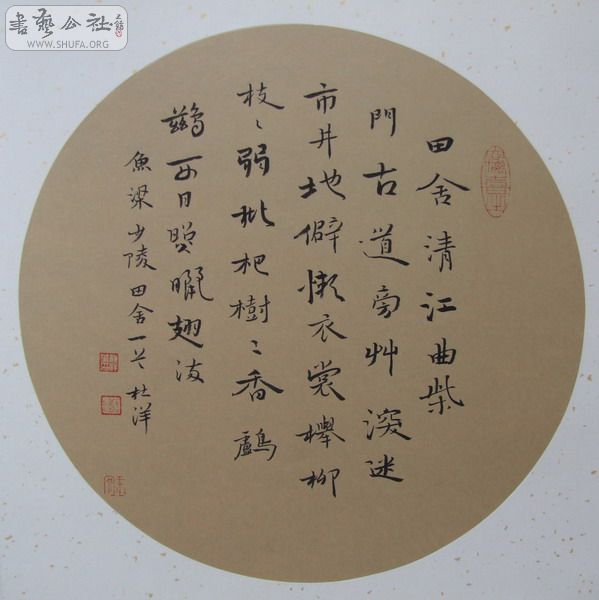 書藝公社
WWW.SHUFA.ORG
田舍清江曲柴
門古道旁艸深迷
市井地僻懶衣裳櫸柳
枝〻弱枇杷樹〻香鸕
鷀西日照曬翅滿
魚梁少陵田舍一首杜洋